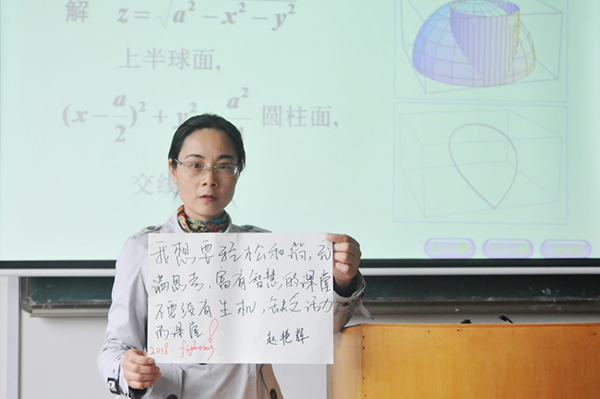 解 z = √a² − x² − y²
上半球面,
(x − a/2)² + y² a² 圆柱面,
交线
我想要轻松和谐, 充
满思考、富有智慧的课堂
不要没有生机, 缺乏活力
的课堂!
2018. fighting
赵艳辉